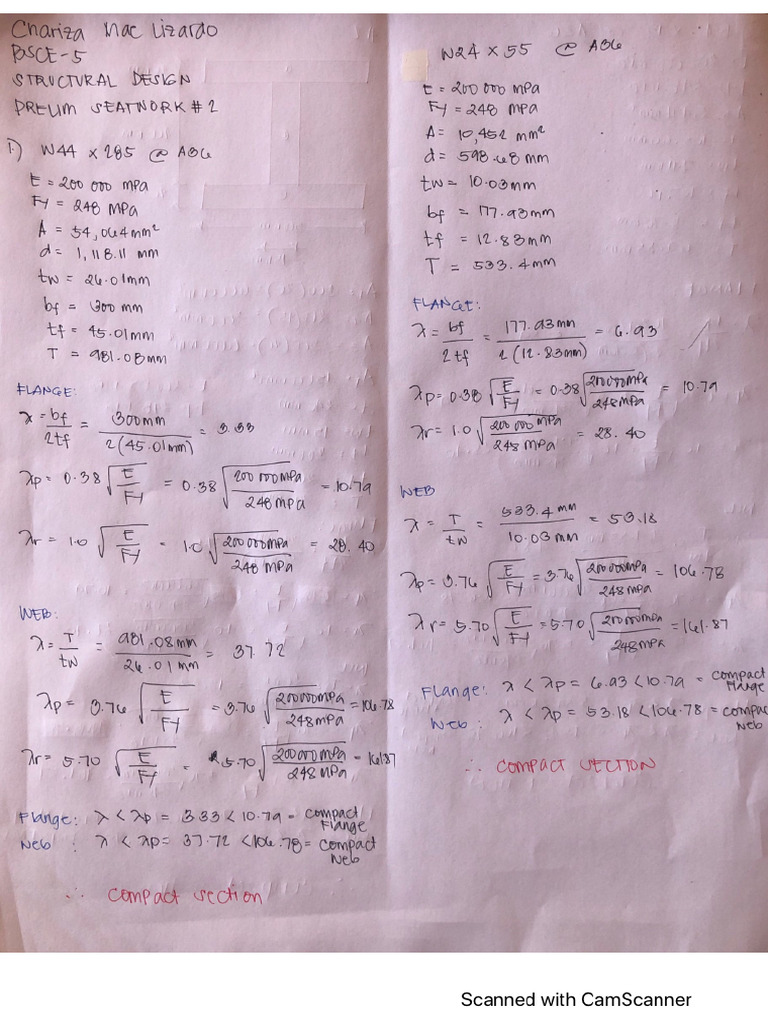 Chariza Mae Lizardo
BSCE-5
STRUCTURAL DESIGN
PRELIM SEATWORK # 2
1.) W44 x 285 @ A36
E = 200 000 mPa
Fy = 248 MPa
A = 54,064 mm²
d = 1,118.11 mm
tw = 26.01mm
bf = 300 mm
tf = 45.01mm
T = 981.08mm
FLANGE:
λ = bf/2tf = 300mm/2(45.01mm) = 3.33
λp = 0.38 √(E/Fy) = 0.38 √(200 000mPa/248 mPa) = 10.79
λr = 1.0 √(E/Fy) = 1.0 √(200 000mPa/248 MPa) = 28.40
WEB:
λ = T/tw = 981.08mm/26.01 mm = 37.72
λp = 3.76 √(E/Fy) = 3.76 √(200 000mPa/248mPa) = 106.78
λr = 5.70 √(E/Fy) = 5.70 √(200 000mPa/248 MPa) = 161.87
Flange: λ < λp = 3.33 < 10.79 = compact
Flange
Web : λ < λp = 37.72 < 106.78 = compact
Web
∴ compact section
W24 x 55 @ A36
E = 200 000 mPa
Fy = 248 mPa
A = 10,452 mm²
d = 598.68 mm
tw = 10.03mm
bf = 177.93mm
tf = 12.83mm
T = 533.4mm
FLANGE:
λ = bf/2tf = 177.93mm/2(12.83mm) = 6.93
λp = 0.38 √(E/Fy) = 0.38 √(200 000mPa/248MPa) = 10.79
λr = 1.0 √(200 000 mPa/248 MPa) = 28.40
WEB
λ = T/tw = 533.4 mm/10.03mm = 53.18
λp = 3.76 √(E/Fy) = 3.76 √(200 000mPa/248MPa) = 106.78
λr = 5.70 √(E/Fy) = 5.70 √(200 000mPa/248MPa) = 161.87
Flange: λ < λp = 6.93 < 10.79 = compact
Flange
Web : λ < λp = 53.18 < 106.78 = compac
Web
∴ COMPACT SECTION
Scanned with CamScanner